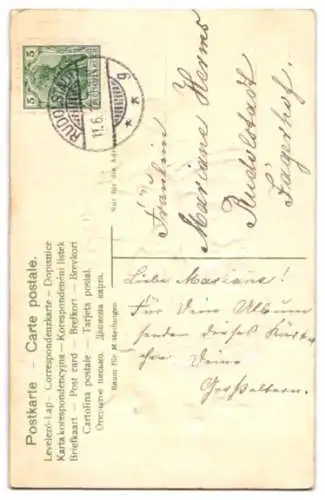 Postkarte - Carte postale.
Levelező-Lap - Correspondenzkarte - Dopisnice
Karta korespondencyjna - Korespondenční listek
Briefkaart - Post card - Brefkort - Brevkort
Cartolina postale - Tarjeta postal.
Открытое письмо.
Nur für die Adresse
Raum für Mitteilungen
5 5
RUDOLSTADT
11.6.
Fräulein
Mariane Herms
Rudolstadt
Jägerhof.
Liebe Mariane!
Für Dein Album
senden dieses Kärt
chen Deine
Großeltern.